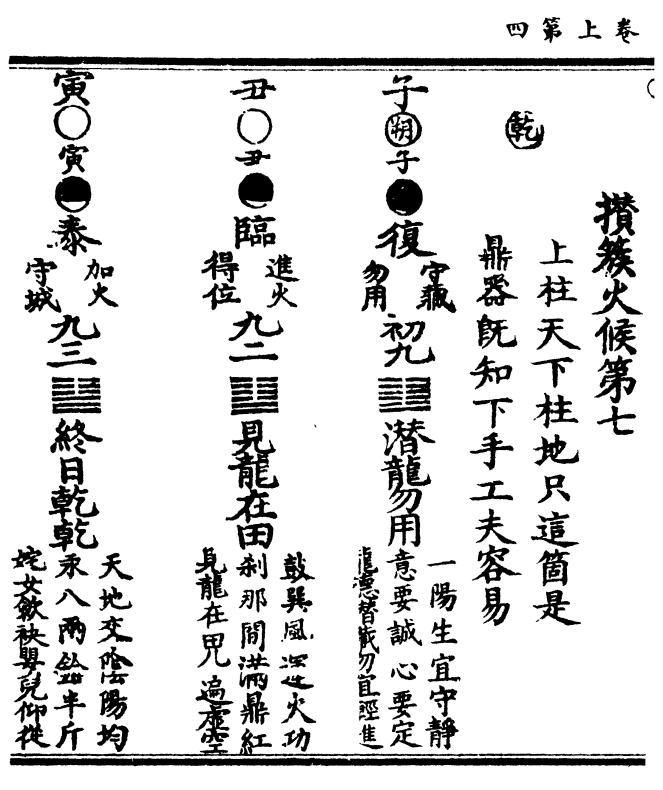 卷上第四
攢簇火候第七
上柱天下柱地只這箇是
鼎器旣知下手工夫容易
乾
子
朔
子
復
守藏
勿用
初九
潛龍勿用
一陽生宜守靜
意要誠心要定
龍德潛藏勿宜輕進
丑
丑
臨
進火
得位
九二
見龍在田
鼓巽風運火功
刹那間滿鼎紅
見龍在田遍虛空
寅
寅
泰
加火
守城
九三
終日乾乾
天地交陰陽均
汞八兩鉛半斤
姹女斂袂嬰兒仰從